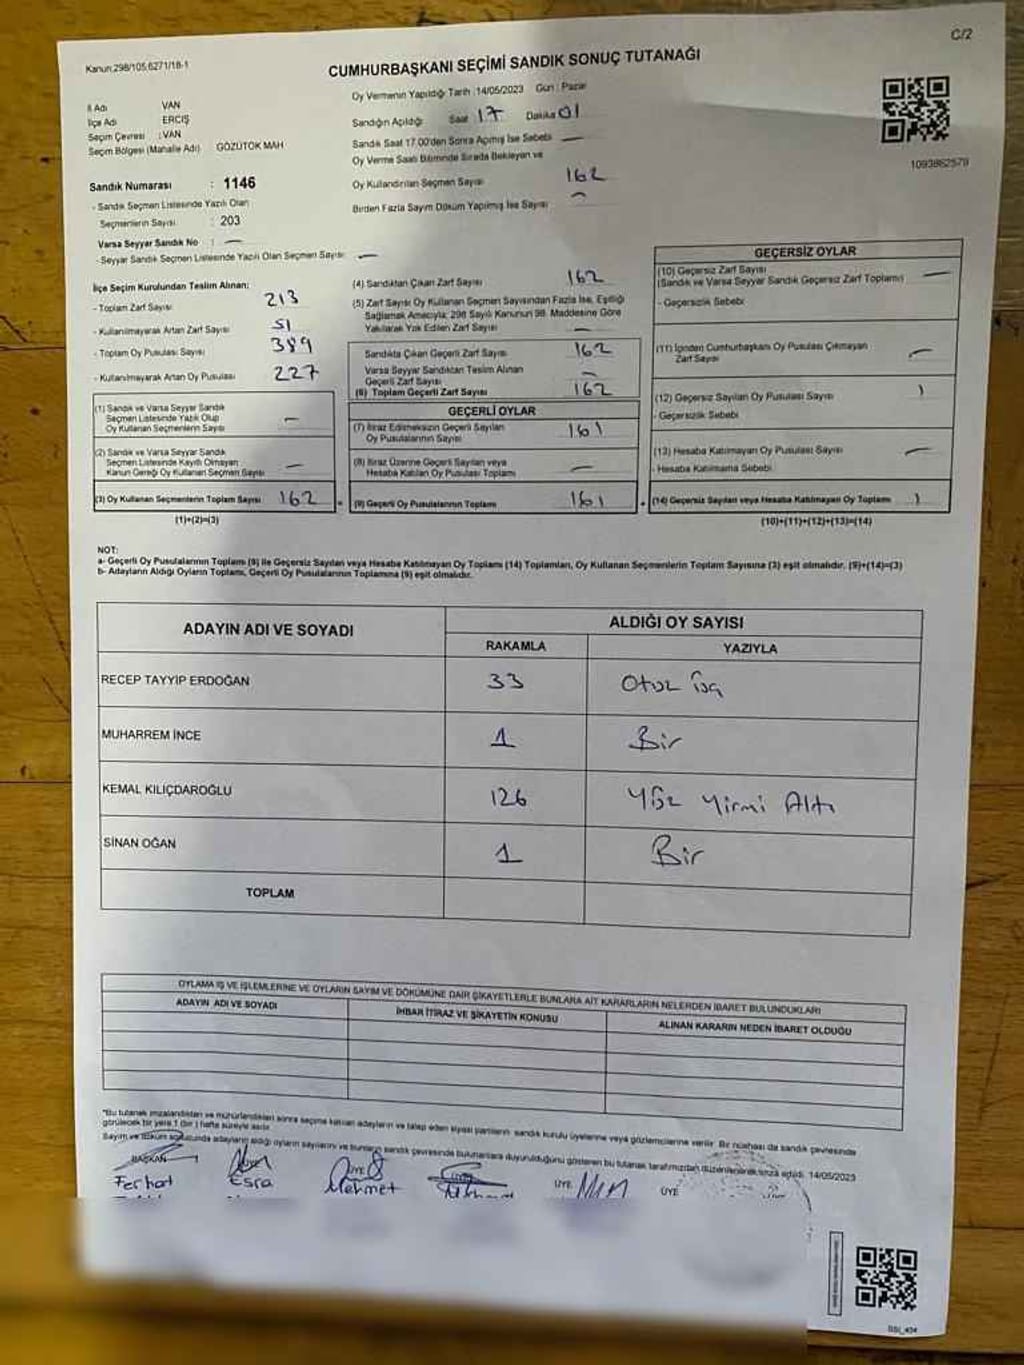 C/2
Kanun:298/105,6271/18-1
CUMHURBAŞKANI SEÇİMİ SANDIK SONUÇ TUTANAĞI
İl Adı VAN
İlçe Adı ERCİŞ
Seçim Çevresi : VAN
Seçim Bölgesi (Mahalle Adı) GÖZÜTOK MAH
Sandık Numarası : 1146
- Sandık Seçmen Listesinde Yazılı Olan
Seçmenlerin Sayısı : 203
Varsa Seyyar Sandık No : —
- Seyyar Sandık Seçmen Listesinde Yazılı Olan Seçmen Sayısı: —
Oy Vermenin Yapıldığı Tarih : 14/05/2023 Gün : Pazar
Sandığın Açıldığı Saat 17 Dakika 01
Sandık Saat 17.00'den Sonra Açılmış İse Sebebi —
Oy Verme Saati Bitiminde Sırada Bekleyen ve
Oy Kullandırılan Seçmen Sayısı 162
Birden Fazla Sayım Döküm Yapılmış İse Sayısı —
1093862579
İlçe Seçim Kurulundan Teslim Alınan:
- Toplam Zarf Sayısı 213
- Kullanılmayarak Artan Zarf Sayısı 51
- Toplam Oy Pusulası Sayısı 389
- Kullanılmayarak Artan Oy Pusulası 227
(1) Sandık ve Varsa Seyyar Sandık
Seçmen Listesinde Yazılı Olup
Oy Kullanan Seçmenlerin Sayısı —
(2) Sandık ve Varsa Seyyar Sandık
Seçmen Listesinde Kayıtlı Olmayan
Kanun Gereği Oy Kullanan Seçmen Sayısı —
(3) Oy Kullanan Seçmenlerin Toplam Sayısı 162
(1)+(2)=(3)
(4) Sandıktan Çıkan Zarf Sayısı 162
(5) Zarf Sayısı Oy Kullanan Seçmen Sayısından Fazla İse, Eşitliği
Sağlamak Amacıyla; 298 Sayılı Kanunun 98. Maddesine Göre
Yakılarak Yok Edilen Zarf Sayısı —
Sandıkta Çıkan Geçerli Zarf Sayısı 162
Varsa Seyyar Sandıktan Teslim Alınan
Geçerli Zarf Sayısı —
(6) Toplam Geçerli Zarf Sayısı 162
GEÇERLİ OYLAR
(7) İtiraz Edilmeksizin Geçerli Sayılan
Oy Pusulalarının Sayısı 161
(8) İtiraz Üzerine Geçerli Sayılan veya
Hesaba Katılan Oy Pusulası Toplamı —
(9) Geçerli Oy Pusulalarının Toplamı 161
GEÇERSİZ OYLAR
(10) Geçersiz Zarf Sayısı
(Sandık ve Varsa Seyyar Sandık Geçersiz Zarf Toplamı) —
- Geçersizlik Sebebi
(11) İçinden Cumhurbaşkanı Oy Pusulası Çıkmayan
Zarf Sayısı —
(12) Geçersiz Sayılan Oy Pusulası Sayısı 1
- Geçersizlik Sebebi
(13) Hesaba Katılmayan Oy Pusulası Sayısı —
- Hesaba Katılmama Sebebi
(14) Geçersiz Sayılan veya Hesaba Katılmayan Oy Toplamı 1
(10)+(11)+(12)+(13)=(14)
NOT:
a- Geçerli Oy Pusulalarının Toplamı (9) ile Geçersiz Sayılan veya Hesaba Katılmayan Oy Toplamı (14) Toplamları, Oy Kullanan Seçmenlerin Toplam Sayısına (3) eşit olmalıdır. (9)+(14)=(3)
b- Adayların Aldığı Oyların Toplamı, Geçerli Oy Pusulalarının Toplamına (9) eşit olmalıdır.
ADAYIN ADI VE SOYADI ALDIĞI OY SAYISI
RAKAMLA YAZIYLA
RECEP TAYYİP ERDOĞAN 33 Otuz üç
MUHARREM İNCE 1 Bir
KEMAL KILIÇDAROĞLU 126 Yüz Yirmi Altı
SİNAN OĞAN 1 Bir
TOPLAM
OYLAMA İŞ VE İŞLEMLERİNE VE OYLARIN SAYIM VE DÖKÜMÜNE DAİR ŞİKAYETLERLE BUNLARA AİT KARARLARIN NELERDEN İBARET BULUNDUKLARI
ADAYIN ADI VE SOYADI İHBAR İTİRAZ VE ŞİKAYETİN KONUSU ALINAN KARARIN NEDEN İBARET OLDUĞU
*Bu tutanak imzalandıktan ve mühürlendikten sonra seçime katılan adayların ve talep eden siyasi partilerin sandık kurulu üyelerine veya gözlemcilerine verilir. Bir nüshası da sandık çevresinde
görülecek bir yere 1 (bir) hafta süreyle asılır.
Sayım ve döküm sonucunda adayların aldığı oyların sayılarını ve bunların sandık çevresinde bulunanlara duyurulduğunu gösteren bu tutanak tarafımızdan düzenlenerek imza edildi. 14/05/2023
BAŞKAN ÜYE ÜYE ÜYE
Ferhat Esra Mehmet